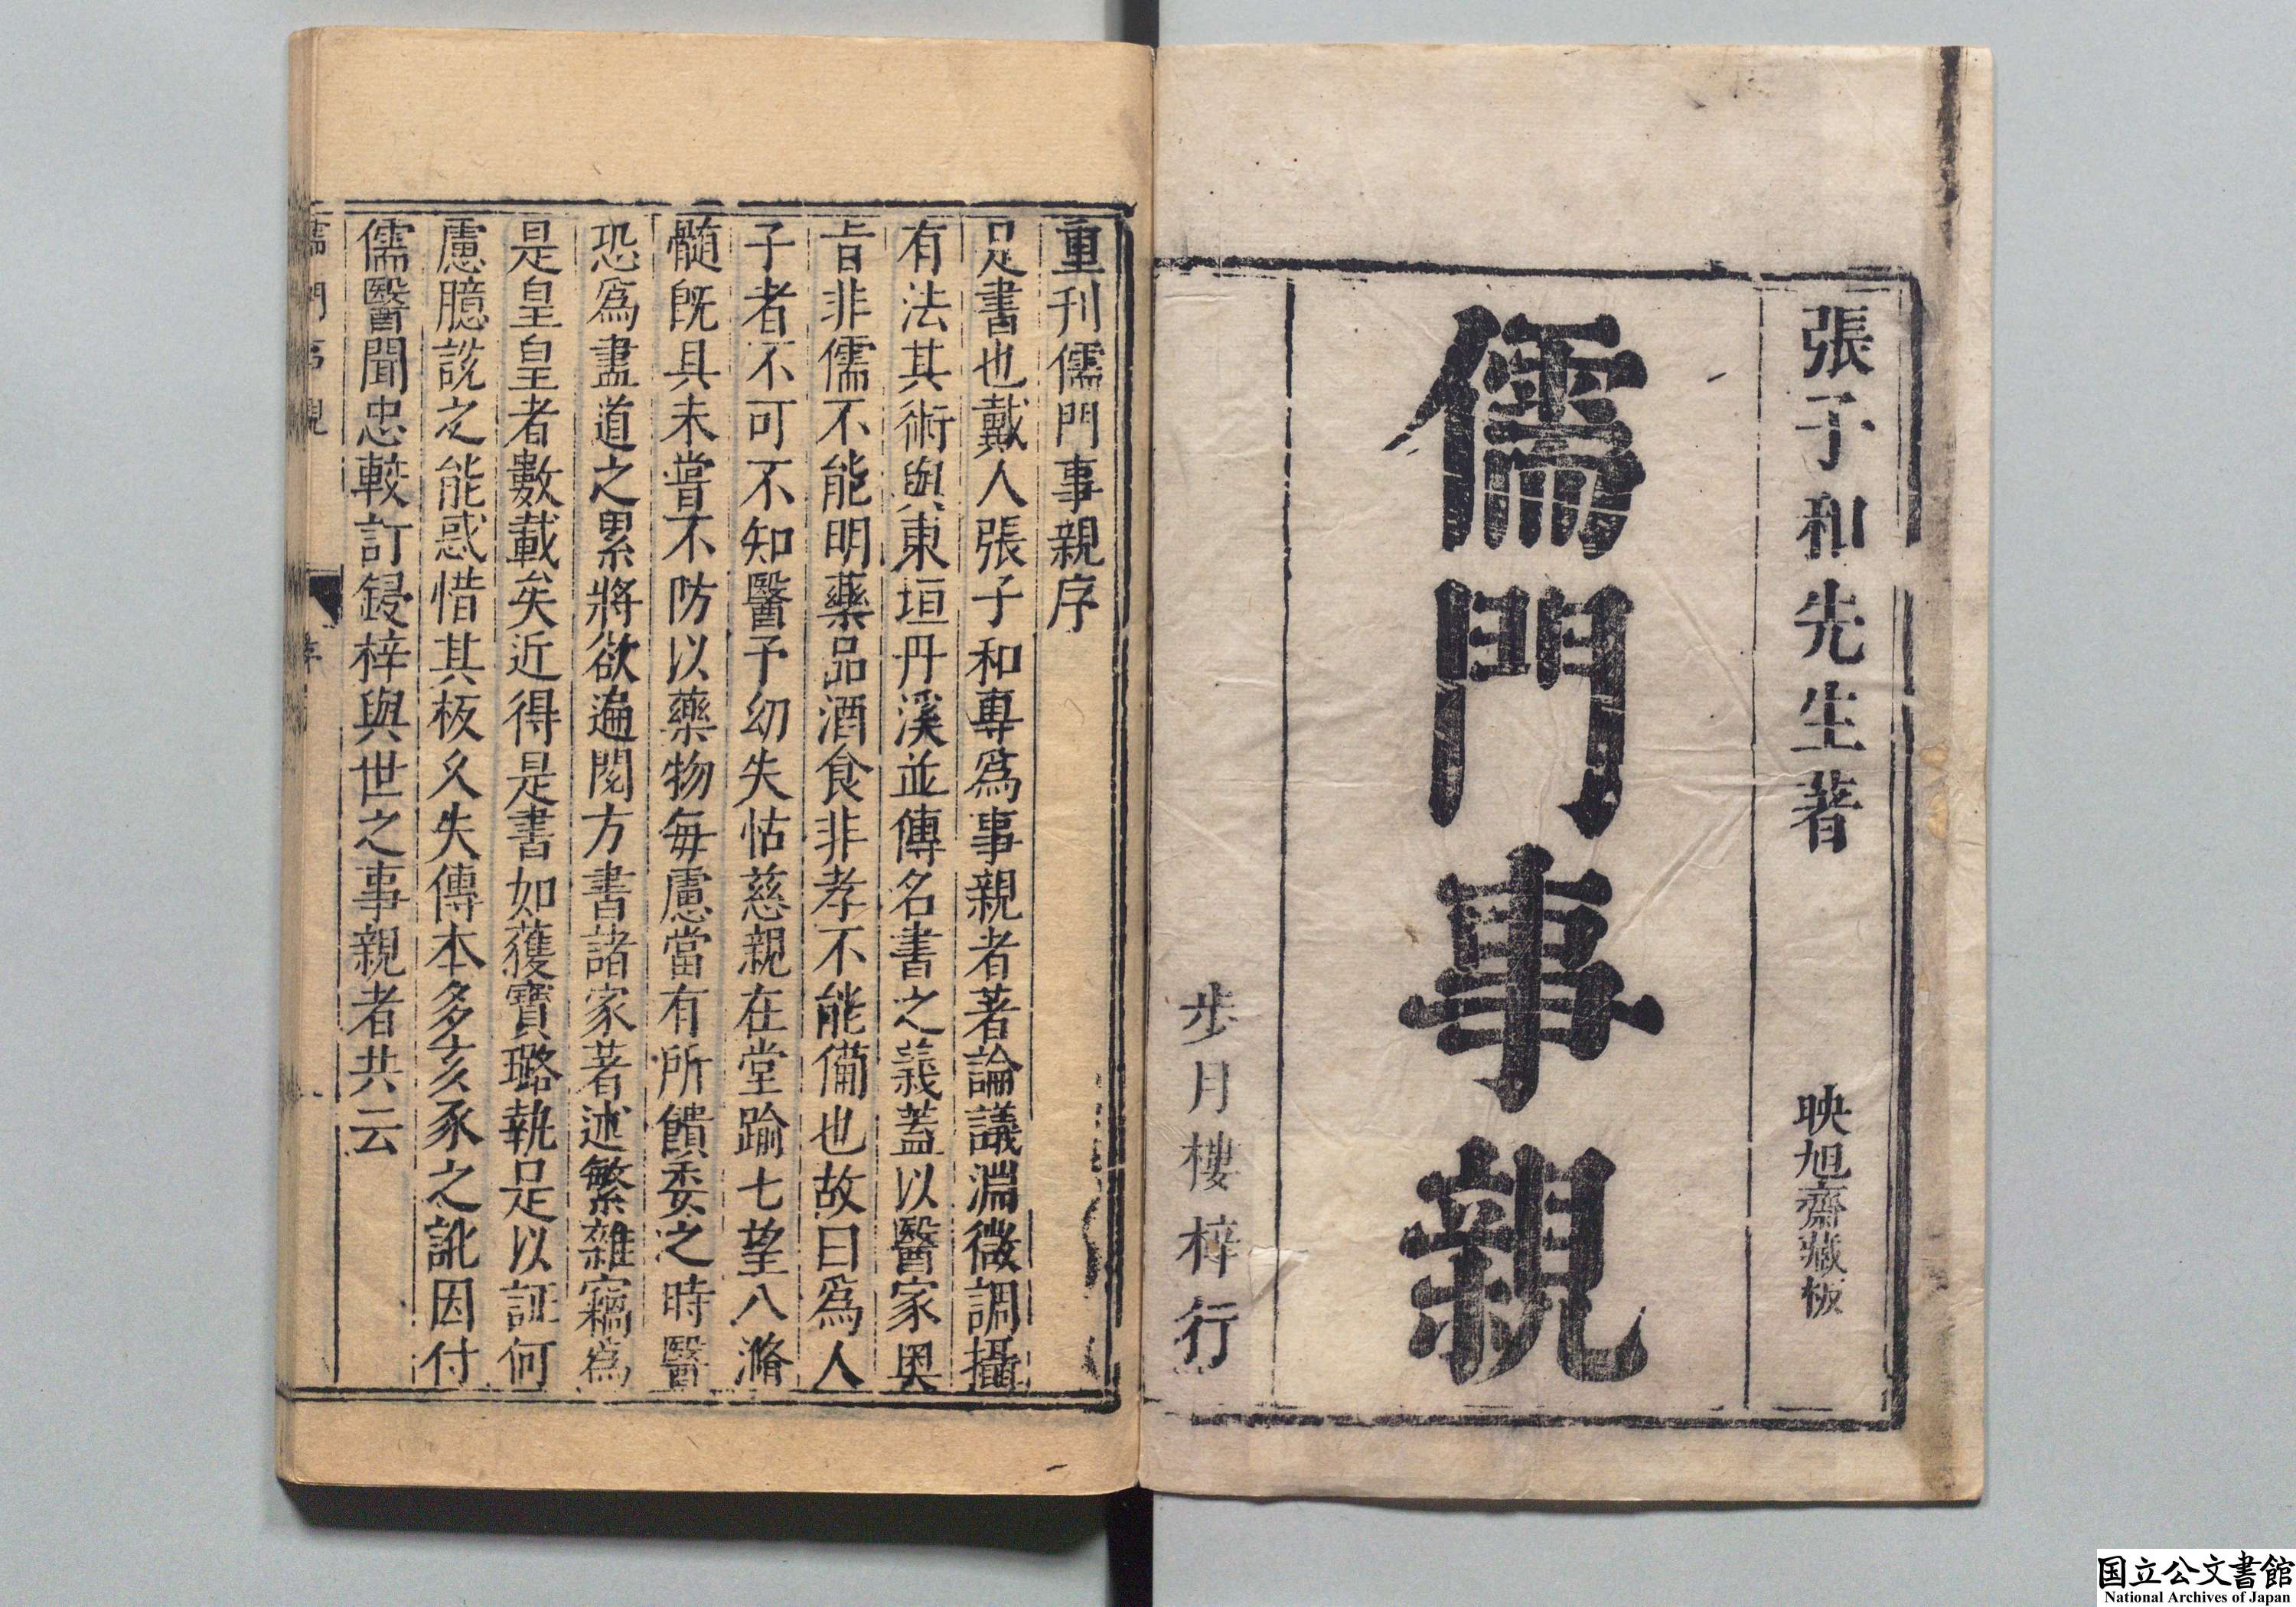 張子和先生著
映旭齋藏板
儒門事親
步月樓梓行
重刊儒門事親序
是書也戴人張子和專爲事親者著論議淵微調攝
有法其術與東垣丹溪並傳名書之義蓋以醫家奥
旨非儒不能明藥品酒食非孝不能備也故曰爲人
子者不可不知醫予幼失怙慈親在堂踰七望八滫
髓旣具未嘗不防以藥物每慮當有所饋委之時醫
恐爲盡道之累將欲遍閱方書諸家著述繁雜竊爲
是皇皇者數載矣近得是書如獲寳璐執足以証何
慮臆説之能惑惜其板久失傳本多亥豕之訛因付
儒醫聞忠較訂鋟梓與世之事親者共云
儒門事親
序
一
国立公文書館
National Archives of Japan